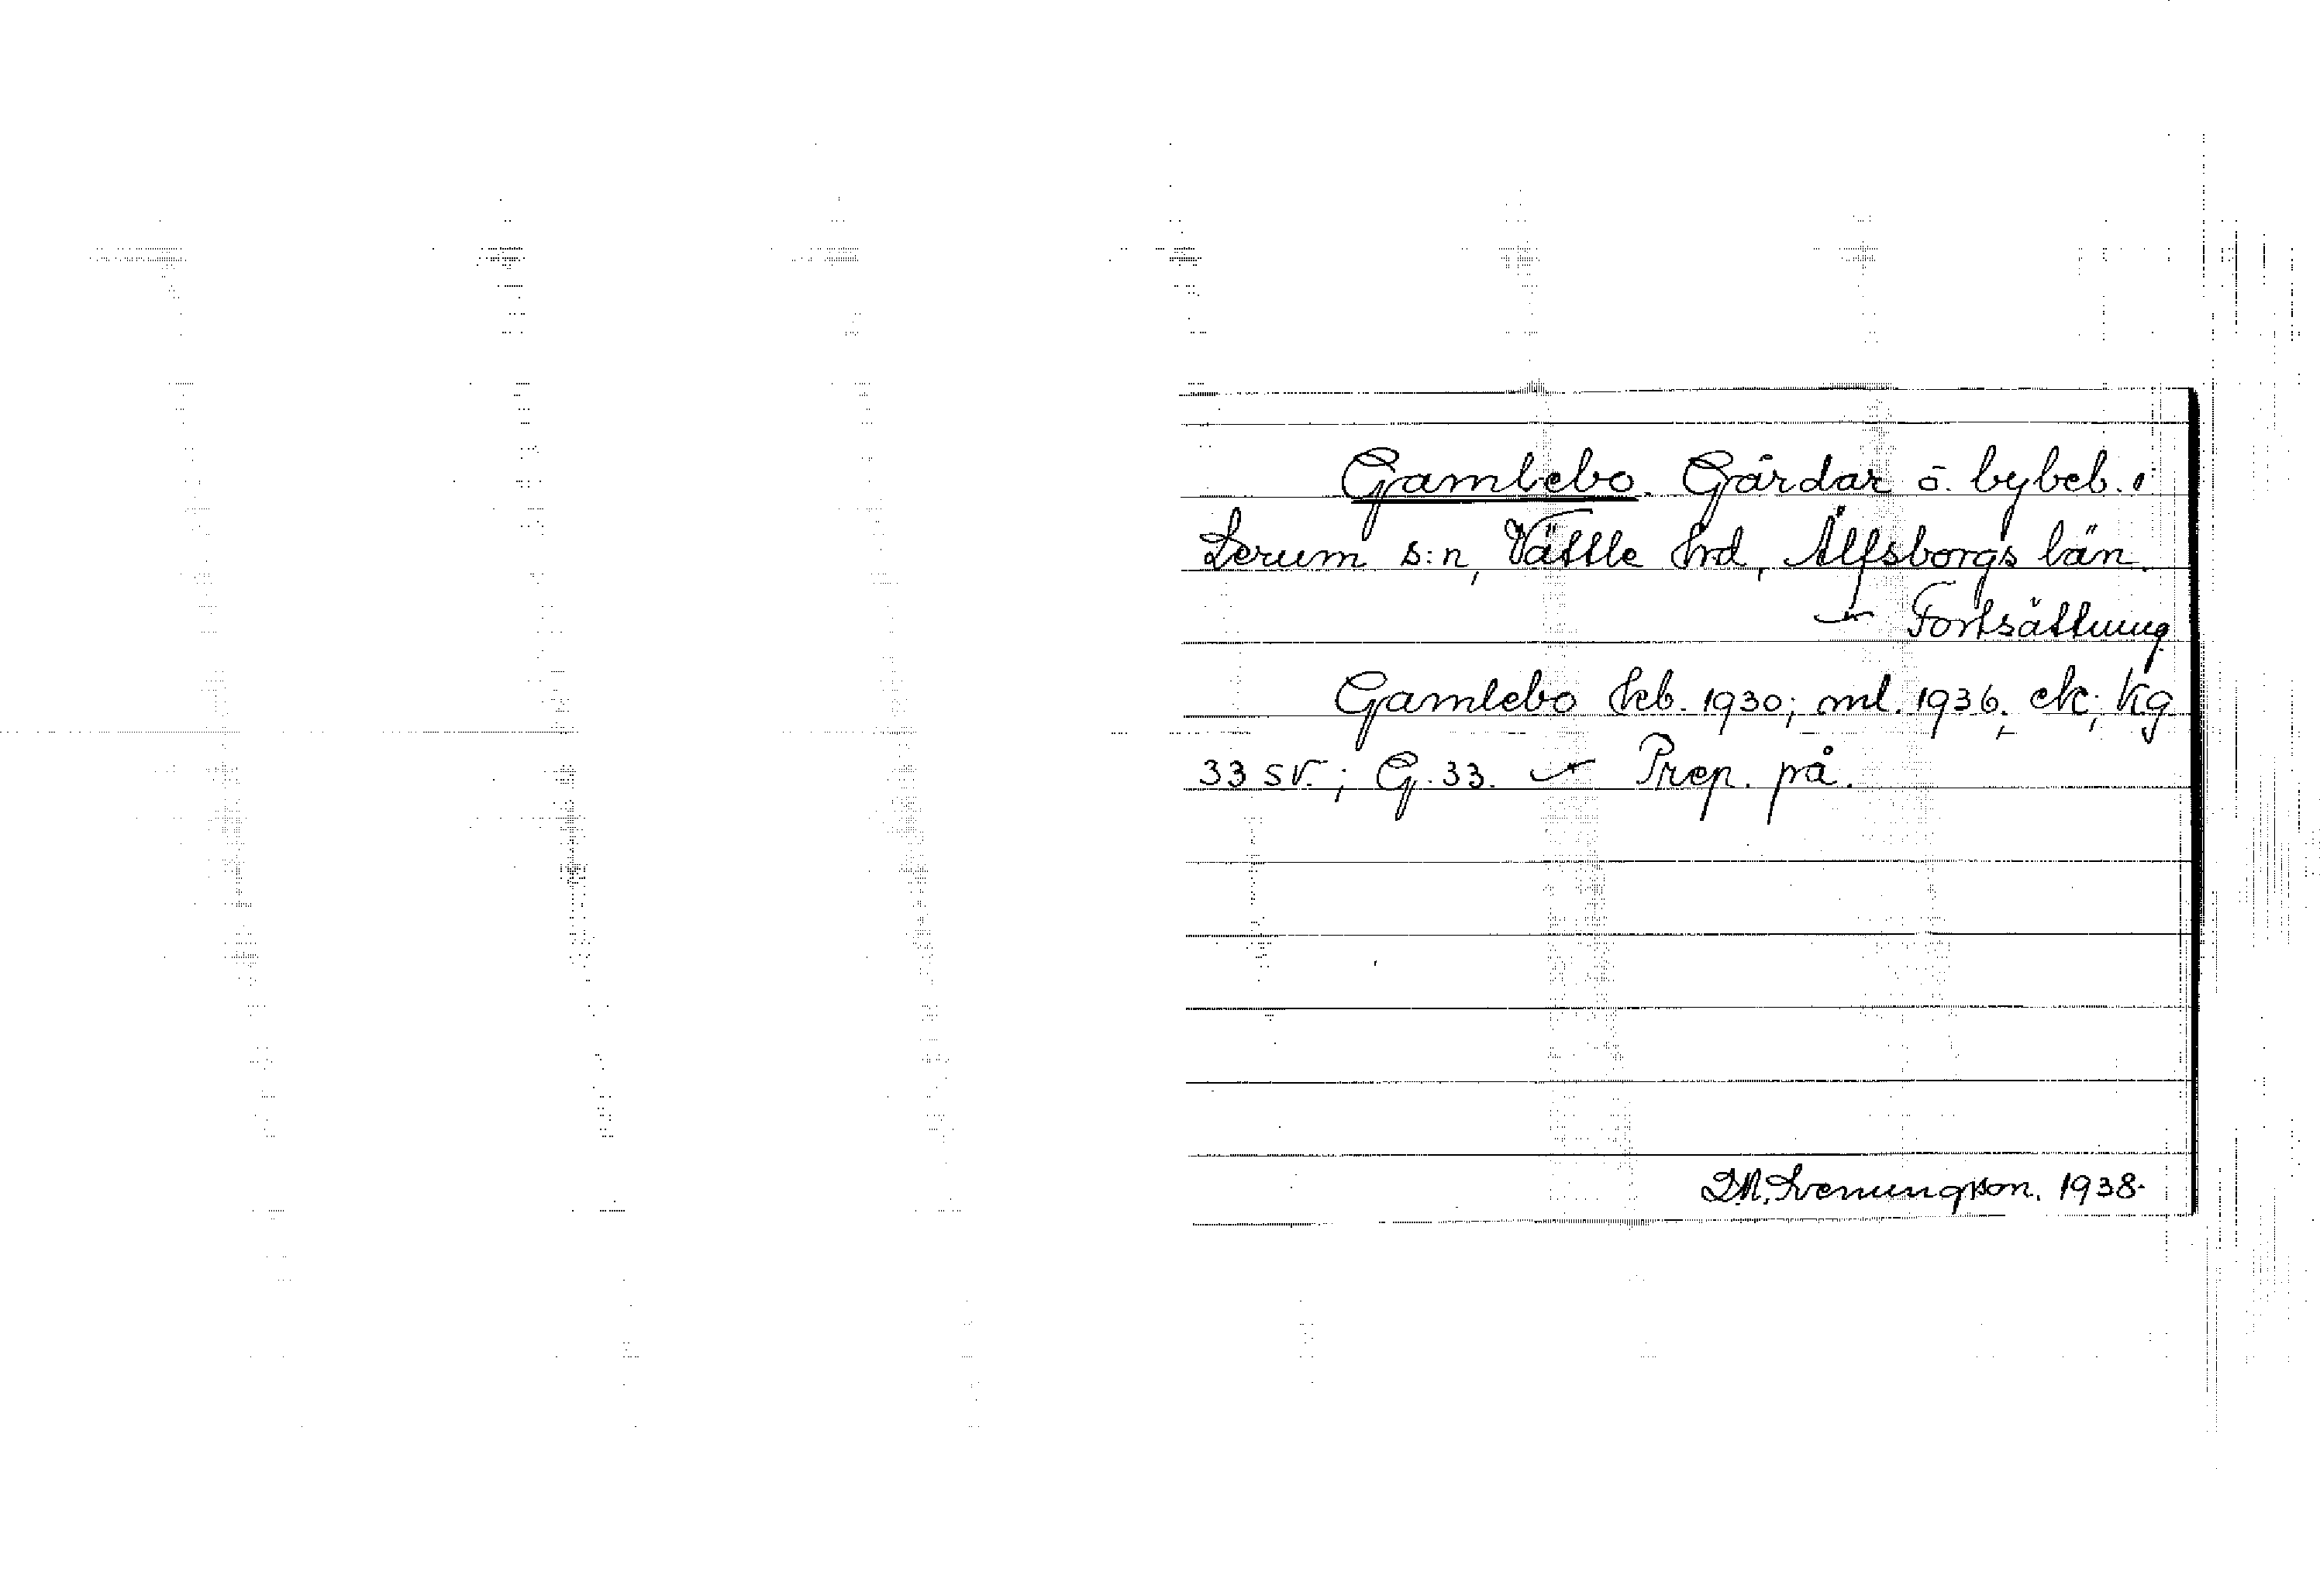 Gamlebo. Gårdar o. bybeb. i
Lerum s:n, Vättle hrd, Älfsborgs län.
— Fortsättning
Gamlebo Feb. 1930; ml. 1936, ek; Kg
33 SV.; G. 33. — Prep. på.
D.M. Svenungsson. 1938.